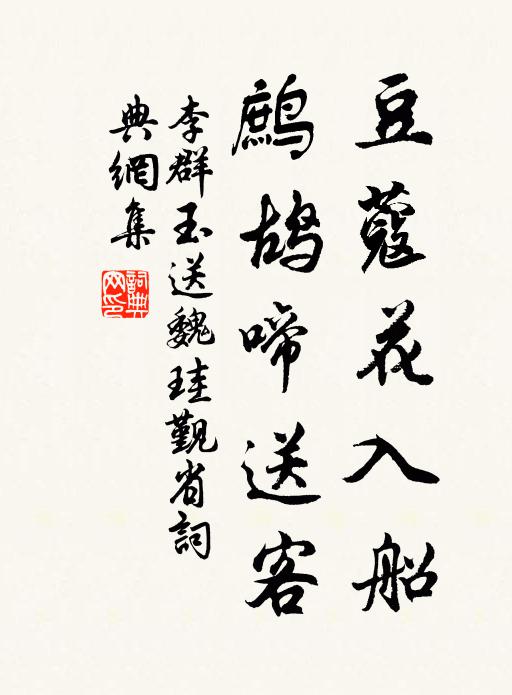 豆蔻花入船
鷓鴣啼送客
李群玉送魏珪覲省詞
典網集
詞典網印